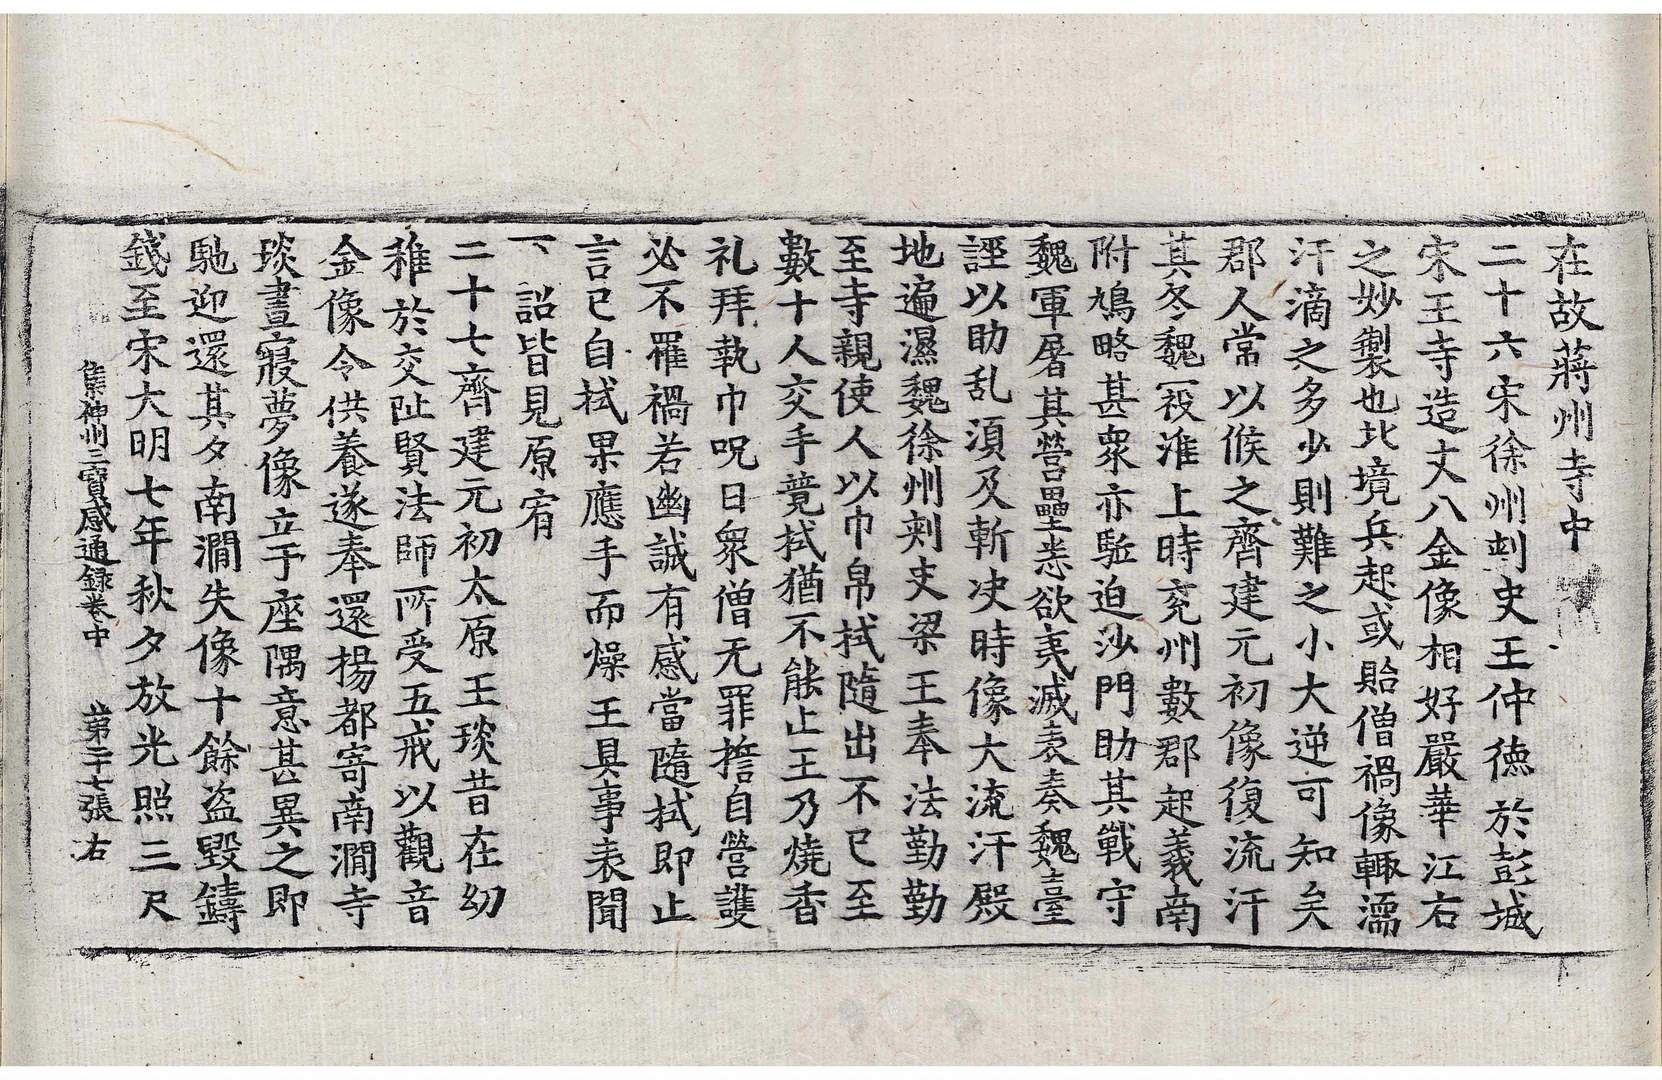 在故蔣州寺中
二十六宋徐州刺史王仲德於彭城
宋王寺造丈八金像相好嚴華江右
之妙製也北境兵起或貽僧禍像輙濡
汗滴之多少則難之小大逆可知矣
郡人常以候之齊建元初像復流汗
其冬魏寇淮上時兖州數郡起義南
附鳩略甚衆亦駈迫沙門助其戰守
魏軍屠其營壘悉欲夷滅表奏魏臺
誣以助乱湏及斬决時像大流汗殿
地遍濕魏徐州刾史梁王奉法勤勤
至寺親使人以巾帛拭隨出不已至
數十人交手竟拭猶不能止王乃燒香
礼拜執巾呪曰衆僧无罪誓自營護
必不罹禍若幽誠有感當隨拭即止
言已自拭果應手而燥王具事表聞
下詔皆見原宥
二十七齊建元初太原王琰昔在幼
稚於交阯賢法師所受五戒以觀音
金像令供養遂奉還楊都寄南澗寺
琰晝寢夢像立于座隅意甚異之即
馳迎還其夕南澗失像十餘盗毀鑄
錢至宋大明七年秋夕放光照三尺
集神州三寶感通録卷中 第二十七張 右